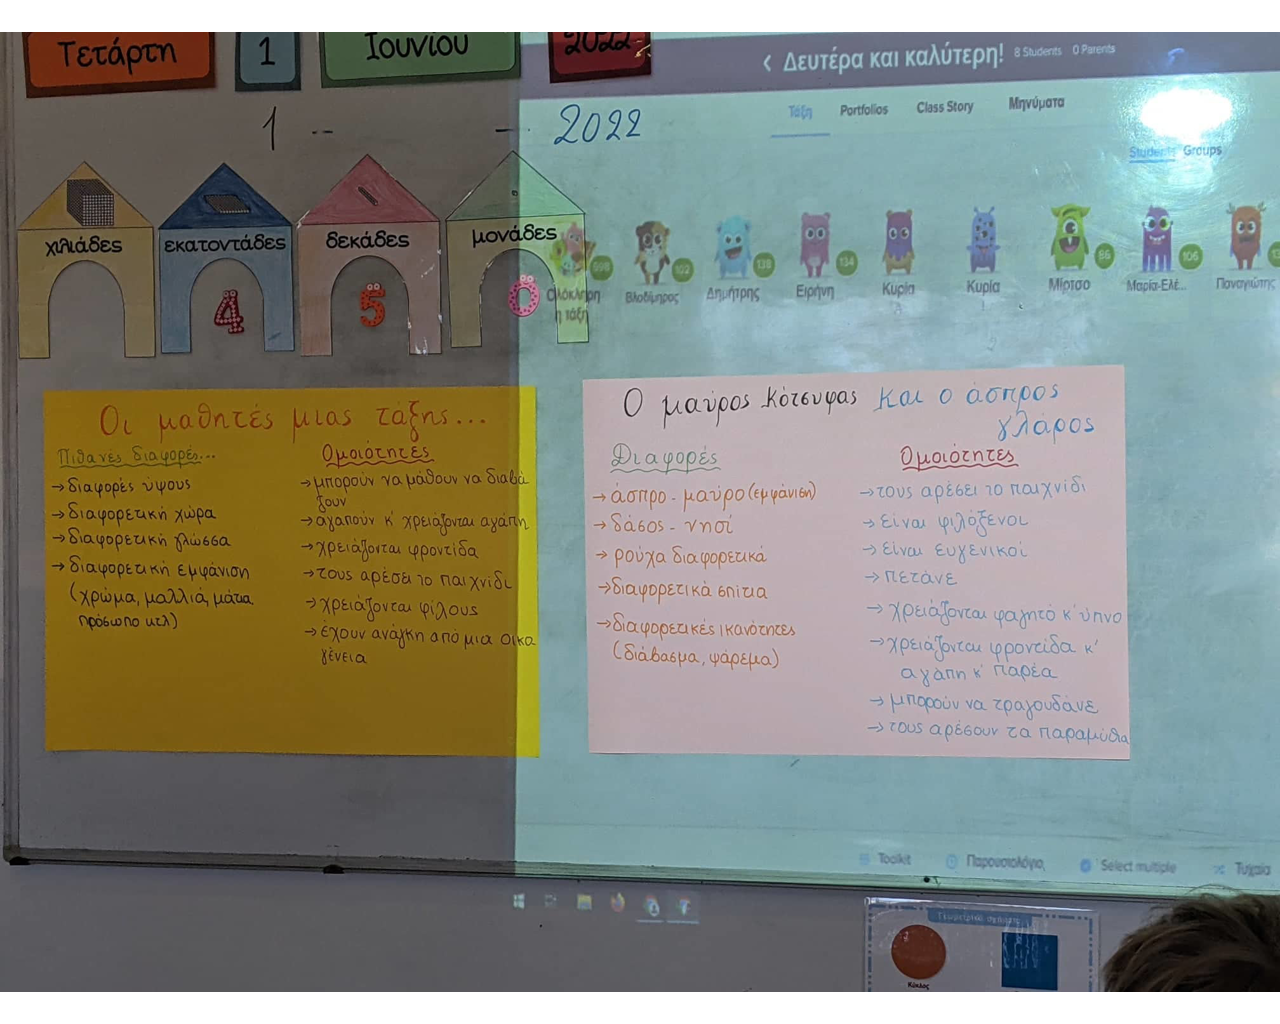 Τετάρτη 1 Ιουνίου 2022
1 -- — 2022
< Δευτέρα και καλύτερη! 8 Students 0 Parents
Τάξη Portfolios Class Story Μηνύματα
Students Groups
χιλιάδες εκατοντάδες δεκάδες μονάδες
4 5 0
598 102 138 134 86 106
Ολόκληρη Βλαδίμηρος Δημήτρης Ειρήνη Κυρία Κυρία Μίρτσο Μαρία-Ελέ... Παναγιώτης
η τάξη
Οι μαθητές μιας τάξης...
Πιθανές διαφορές...
→διαφορές ύψους
→διαφορετική χώρα
→διαφορετική γλώσσα
→διαφορετική εμφάνιση
(χρώμα, μαλλιά, μάτια
πρόσωπο κτλ)
Ομοιότητες
→μπορούν να μάθουν να διαβά
ζουν
→αγαπούν κ' χρειάζονται αγάπη
→χρειάζονται φροντίδα
→τους αρέσει το παιχνίδι
→χρειάζονται φίλους
→έχουν ανάγκη από μια οικο
γένεια
Ο μαύρος κότσυφας και ο άσπρος
γλάρος
Διαφορές
→άσπρο - μαύρο (εμφάνιση)
→δάσος - νησί
→ρούχα διαφορετικά
→διαφορετικά σπίτια
→διαφορετικές ικανότητες
(διάβασμα, ψάρεμα)
Ομοιότητες
→τους αρέσει το παιχνίδι
→είναι φιλόξενοι
→είναι ευγενικοί
→πετάνε
→χρειάζονται φαγητό κ' ύπνο
→χρειάζονται φροντίδα κ'
αγάπη κ' παρέα
→μπορούν να τραγουδάνε
→τους αρέσουν τα παραμύθια
Toolkit Παρουσιολόγιο Select multiple Τυχαία
Γεωμετρικά σχήματα
Κύκλος